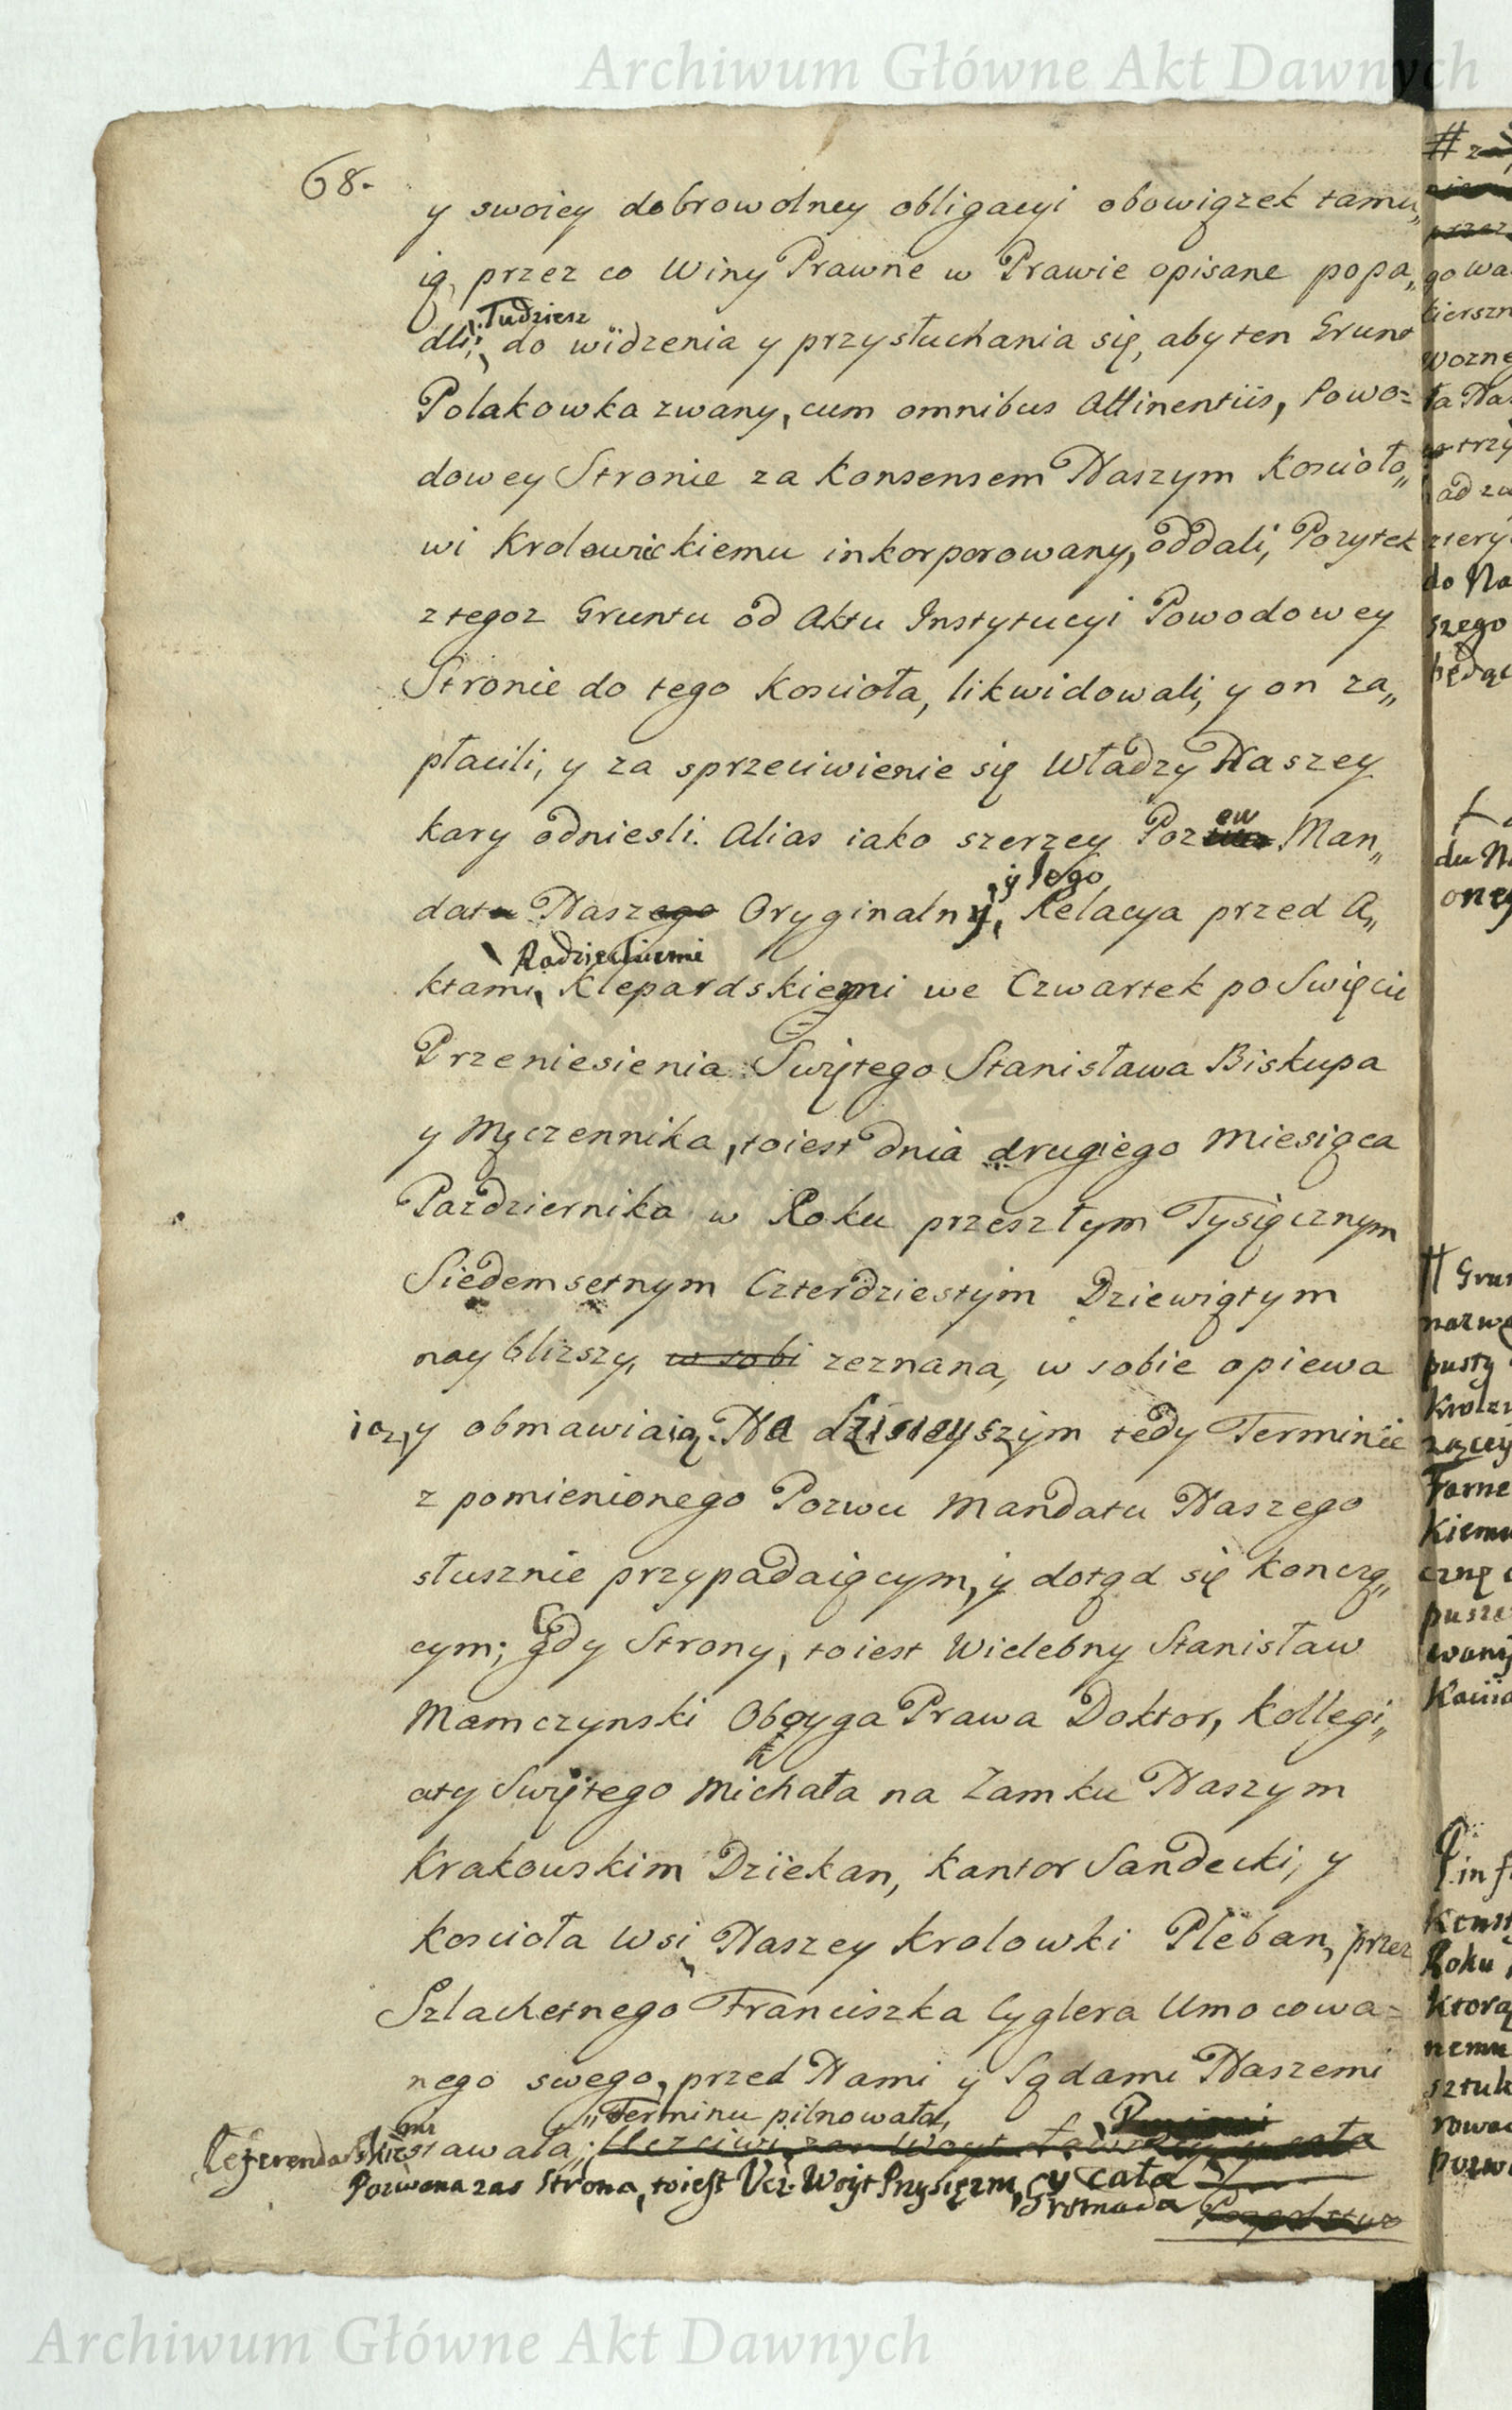 Archiwum Główne Akt Dawnych
68.
y swoiey dobrowolney obligacyi obowiązek tamu„
ią, przez co Winy Prawne w Prawie opisane popa„
Tudziesz
dli; do widzenia y przysłuchania się, aby ten Grunt
Polakowka zwany, cum omnibus Attinentiis, Powo=
dowey Stronie za Konsensem Naszym Koscioło„
wi Krolowickiemu inkorporowany, oddali, Pozytek
z tegoz Gruntu od Aktu Instytucyi Powodowey
Stronie do tego Koscioła, likwidowali, y on za„
płacili, y za sprzeciwienie się Władzy Naszey
ew
kary odniesli. Alias iako szerzey Poz Man„
y iego
data Naszego Oryginalny, Relacya przed A„
Radzieckiemi
ktami Klepardskiemi we Czwartek po Swięcie
Przeniesienia Swiętego Stanisława Biskupa
y Męczennika, toiest dnia drugiego Miesiąca
Pazdziernika w Roku przeszłym Tysiącznym
Siedemsetnym Czterdziestym Dziewiątym
nay blizszy, w sobi zeznana, w sobie opiewa
y obmawiaią. Na dzisieyszym tedy Terminie
z pomienionego Pozwu Mandatu Naszego
słusznie przypadaiącym, y dotąd się konczą„
cym; gdy Strony, toiest Wielebny Stanisław
Mamczynski Oboyga Prawa Doktor, Kollegi„
aty Swiętego Michała na Zamku Naszym
Krakowskim Dziekan, Kantor Sandecki, y
Kosciola Wsi Naszey Krolowki Pleban, przez
Szlachetnego Franciszka Cyglera Umocowa=
nego swego, przed Nami y Sądami Naszemi
Terminu pilnowała,
stawała; Uczciwi zas Woyt Ławnicy y cała
Pozwana zas Strona, toiest Ucz. Woyt Przysięzni, y cała
Gromada
# z
go wa
tierszn
wozne
ta Nas
trzy
ad za
ziery
do Na
szego
będąc
du Na
oney
Grun
nazwa
pusty
Farne
kiemu
czną
pusz
wany
in f
Konst
Roku
ktorą
nemu
sztuk
rowa
pozw
Archiwum Główne Akt Dawnych